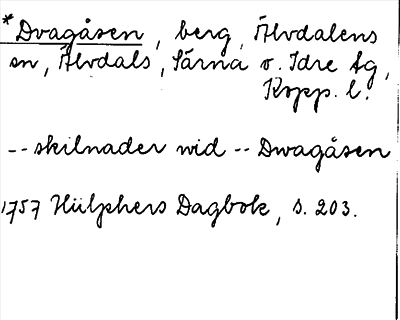 *Dvagåsen, berg, Älvdalens
sn, Älvdals, Särna o. Idre tg,
Kopp. l.
-- skilnader wid -- Dwagåsen
1757 Hülphers Dagbok, s. 203.